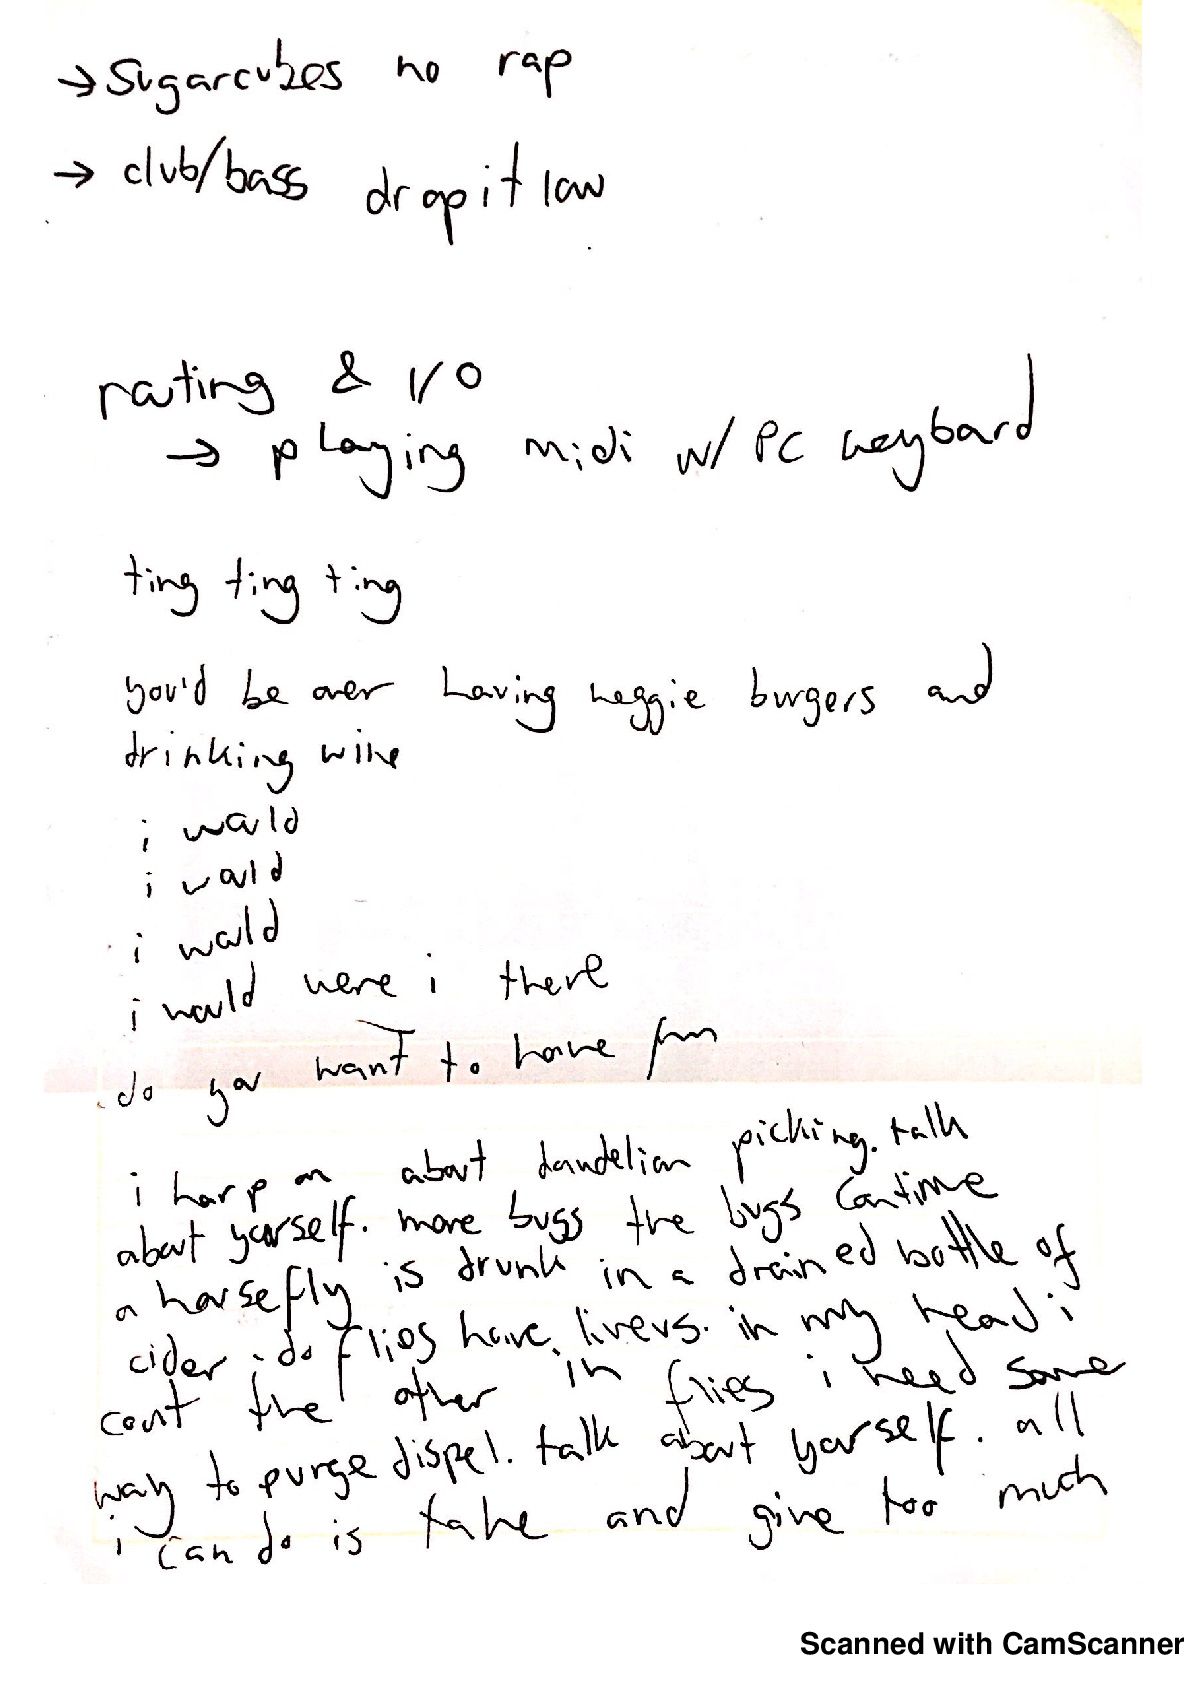 → Sugarcubes no rap
→ club/bass drop it low
routing & I/O
→ playing midi w/ PC keyboard
ting ting ting
you'd be over having veggie burgers and
drinking wine
i would
i would
i would
i would were i there
do you want to have fun
i harp on about dandelion picking. talk
about yourself. more bugs the bugs continue
a horsefly is drunk in a drained bottle of
cider. do flies have livers. in my head i
count the other in flies i need some
way to purge dispel. talk about yourself. all
i can do is take and give too much
Scanned with CamScanner